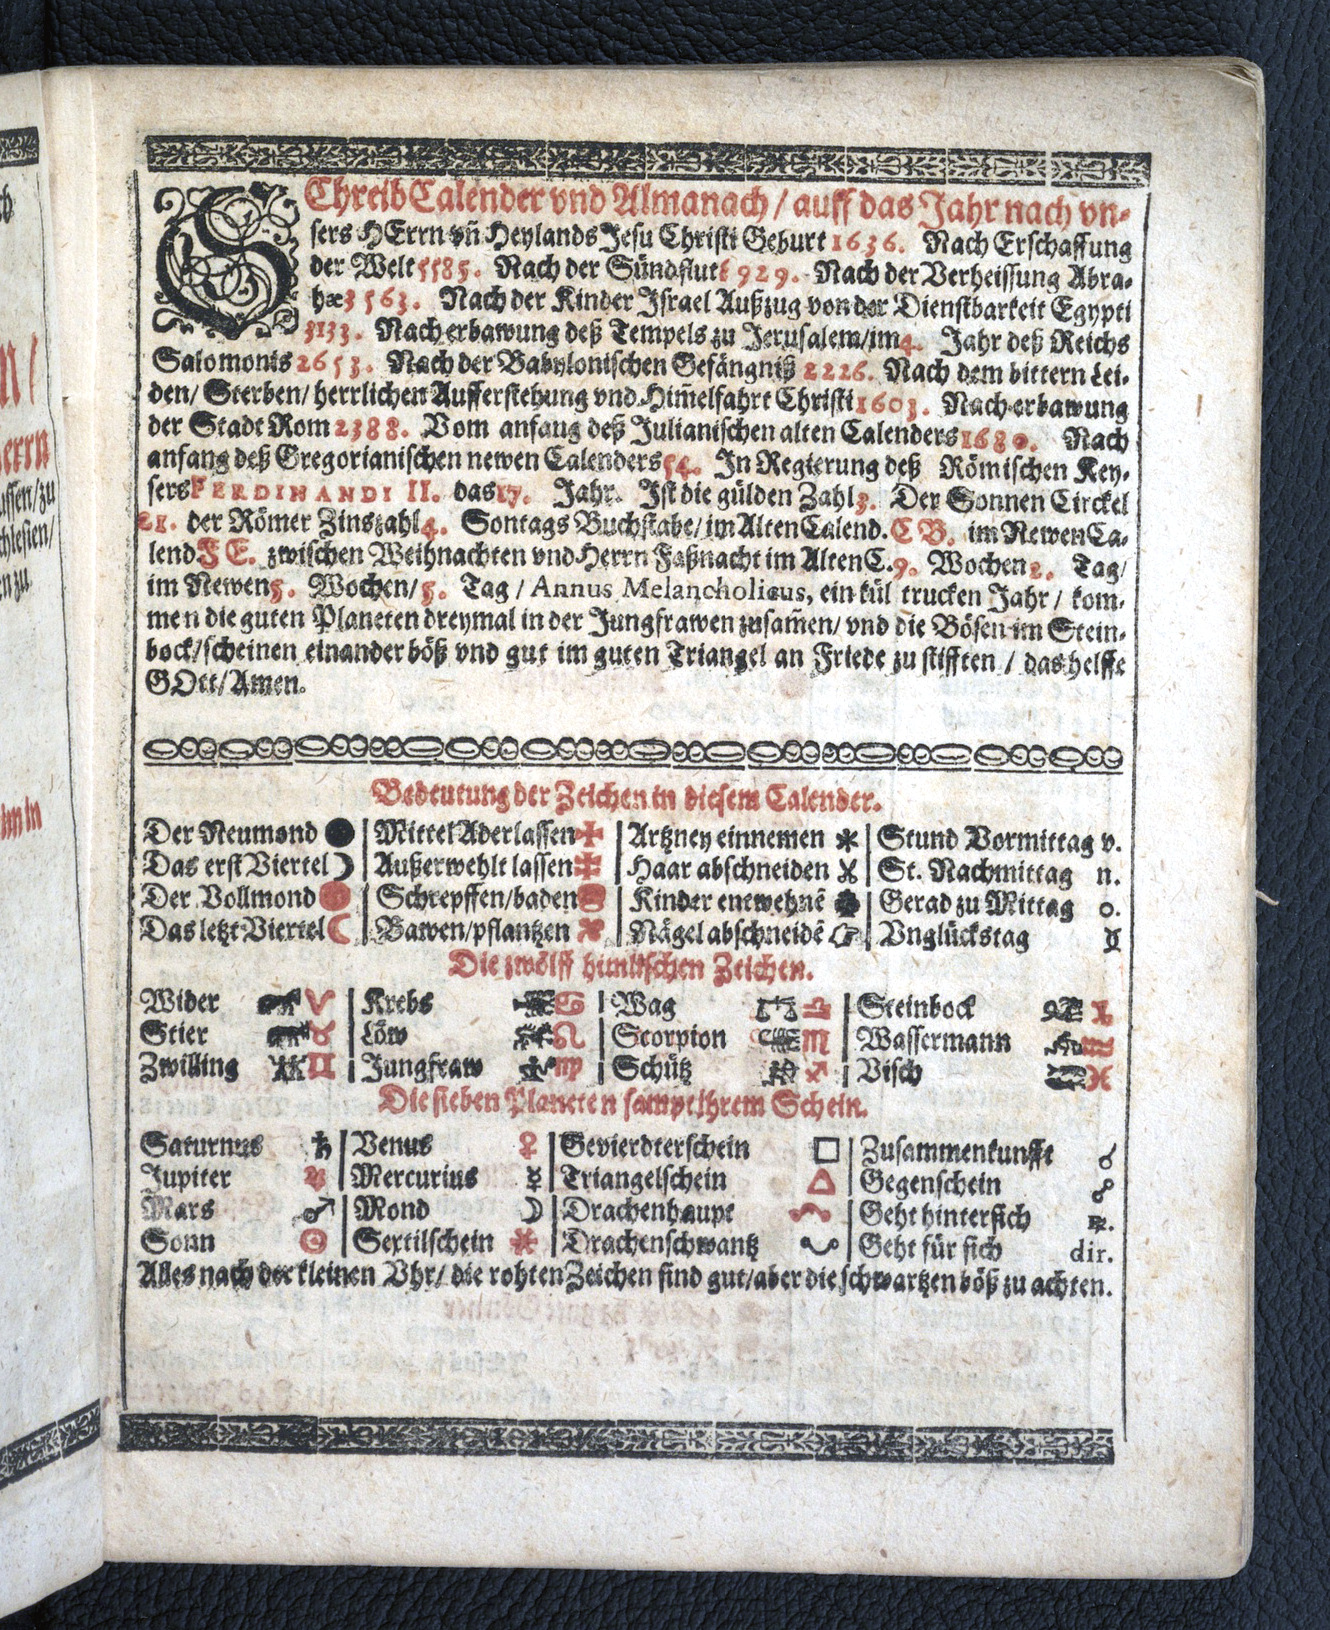 SChreib Calender vnd Almanach / auff das Jahr nach vn-
sers HErrn vñ Heylands Jesu Christi Geburt 1636. Nach Erschaffung
der Welt 5585. Nach der Sündflut 3929. Nach der Verheissung Abra-
hæ 3563. Nach der Kinder Jsrael Außzug von der Dienstbarkeit Egypti
3133. Nach erbawung deß Tempels zu Jerusalem/im 4. Jahr deß Reichs
Salomonis 2653. Nach der Babylonischen Gefängniß 2226. Nach dem bittern Lei-
den/ Sterben/ herrlichen Aufferstehung vnd Him̃elfahrt Christi 1603. Nach erbawung
der Stadt Rom 2388. Vom anfang deß Julianischen alten Calenders 1680. Nach
anfang deß Gregorianischen newen Calenders 54. In Regierung deß Römischen Key-
sers FERDINANDI II. das 17. Jahr. Jst die gülden Zahl 3. Der Sonnen Circkel
21. der Römer Zinszahl 4. Sontags Buchstabe/ im Alten Calend. C B. im Newen Ca-
lend. F E. zwischen Weihnachten vnd Herrn Faßnacht im Alten C. 9. Wochen 2. Tag/
im Newen 5. Wochen/ 5. Tag / Annus Melancholicus, ein kül trucken Jahr / kom-
men die guten Planeten dreymal in der Jungfrawen zusam̃en/ vnd die Bösen im Stein-
bock/ scheinen einander böß vnd gut im guten Triangel an Friede zu stifften / das helffe
GOtt/ Amen.
Bedeutung der Zeichen in diesem Calender.
Der Neumond ● | Mittel Aderlassen | Artzney einnemen | Stund Vormittag v.
Das erst Viertel ☽ | Außerwehlt lassen | Haar abschneiden | St. Nachmittag n.
Der Vollmond | Schrepffen/baden | Kinder entwehnẽ | Gerad zu Mittag o.
Das letzt Viertel ☾ | Bawen/pflantzen | Nägel abschneidẽ | Vnglückstag
Die zwölff himlischen Zeichen.
Wider ♈ | Krebs ♋ | Wag ♎ | Steinbock ♑
Stier ♉ | Löw ♌ | Scorpion ♏ | Wassermann ♒
Zwilling ♊ | Jungfraw ♍ | Schütz ♐ | Visch ♓
Die sieben Planeten sampt ihrem Schein.
Saturnus ♄ | Venus ♀ | Gevierdterschein □ | Zusammenkunfft ☌
Jupiter ♃ | Mercurius ☿ | Triangelschein △ | Gegenschein ☍
Mars ♂ | Mond ☽ | Drachenhaupt ☊ | Geht hintersich ℞.
Sonn ☉ | Sextilschein ⚹ | Drachenschwantz ☋ | Geht für sich dir.
Alles nach der kleinen Vhr/ die rohten Zeichen sind gut/ aber die schwartzen böß zu achten.